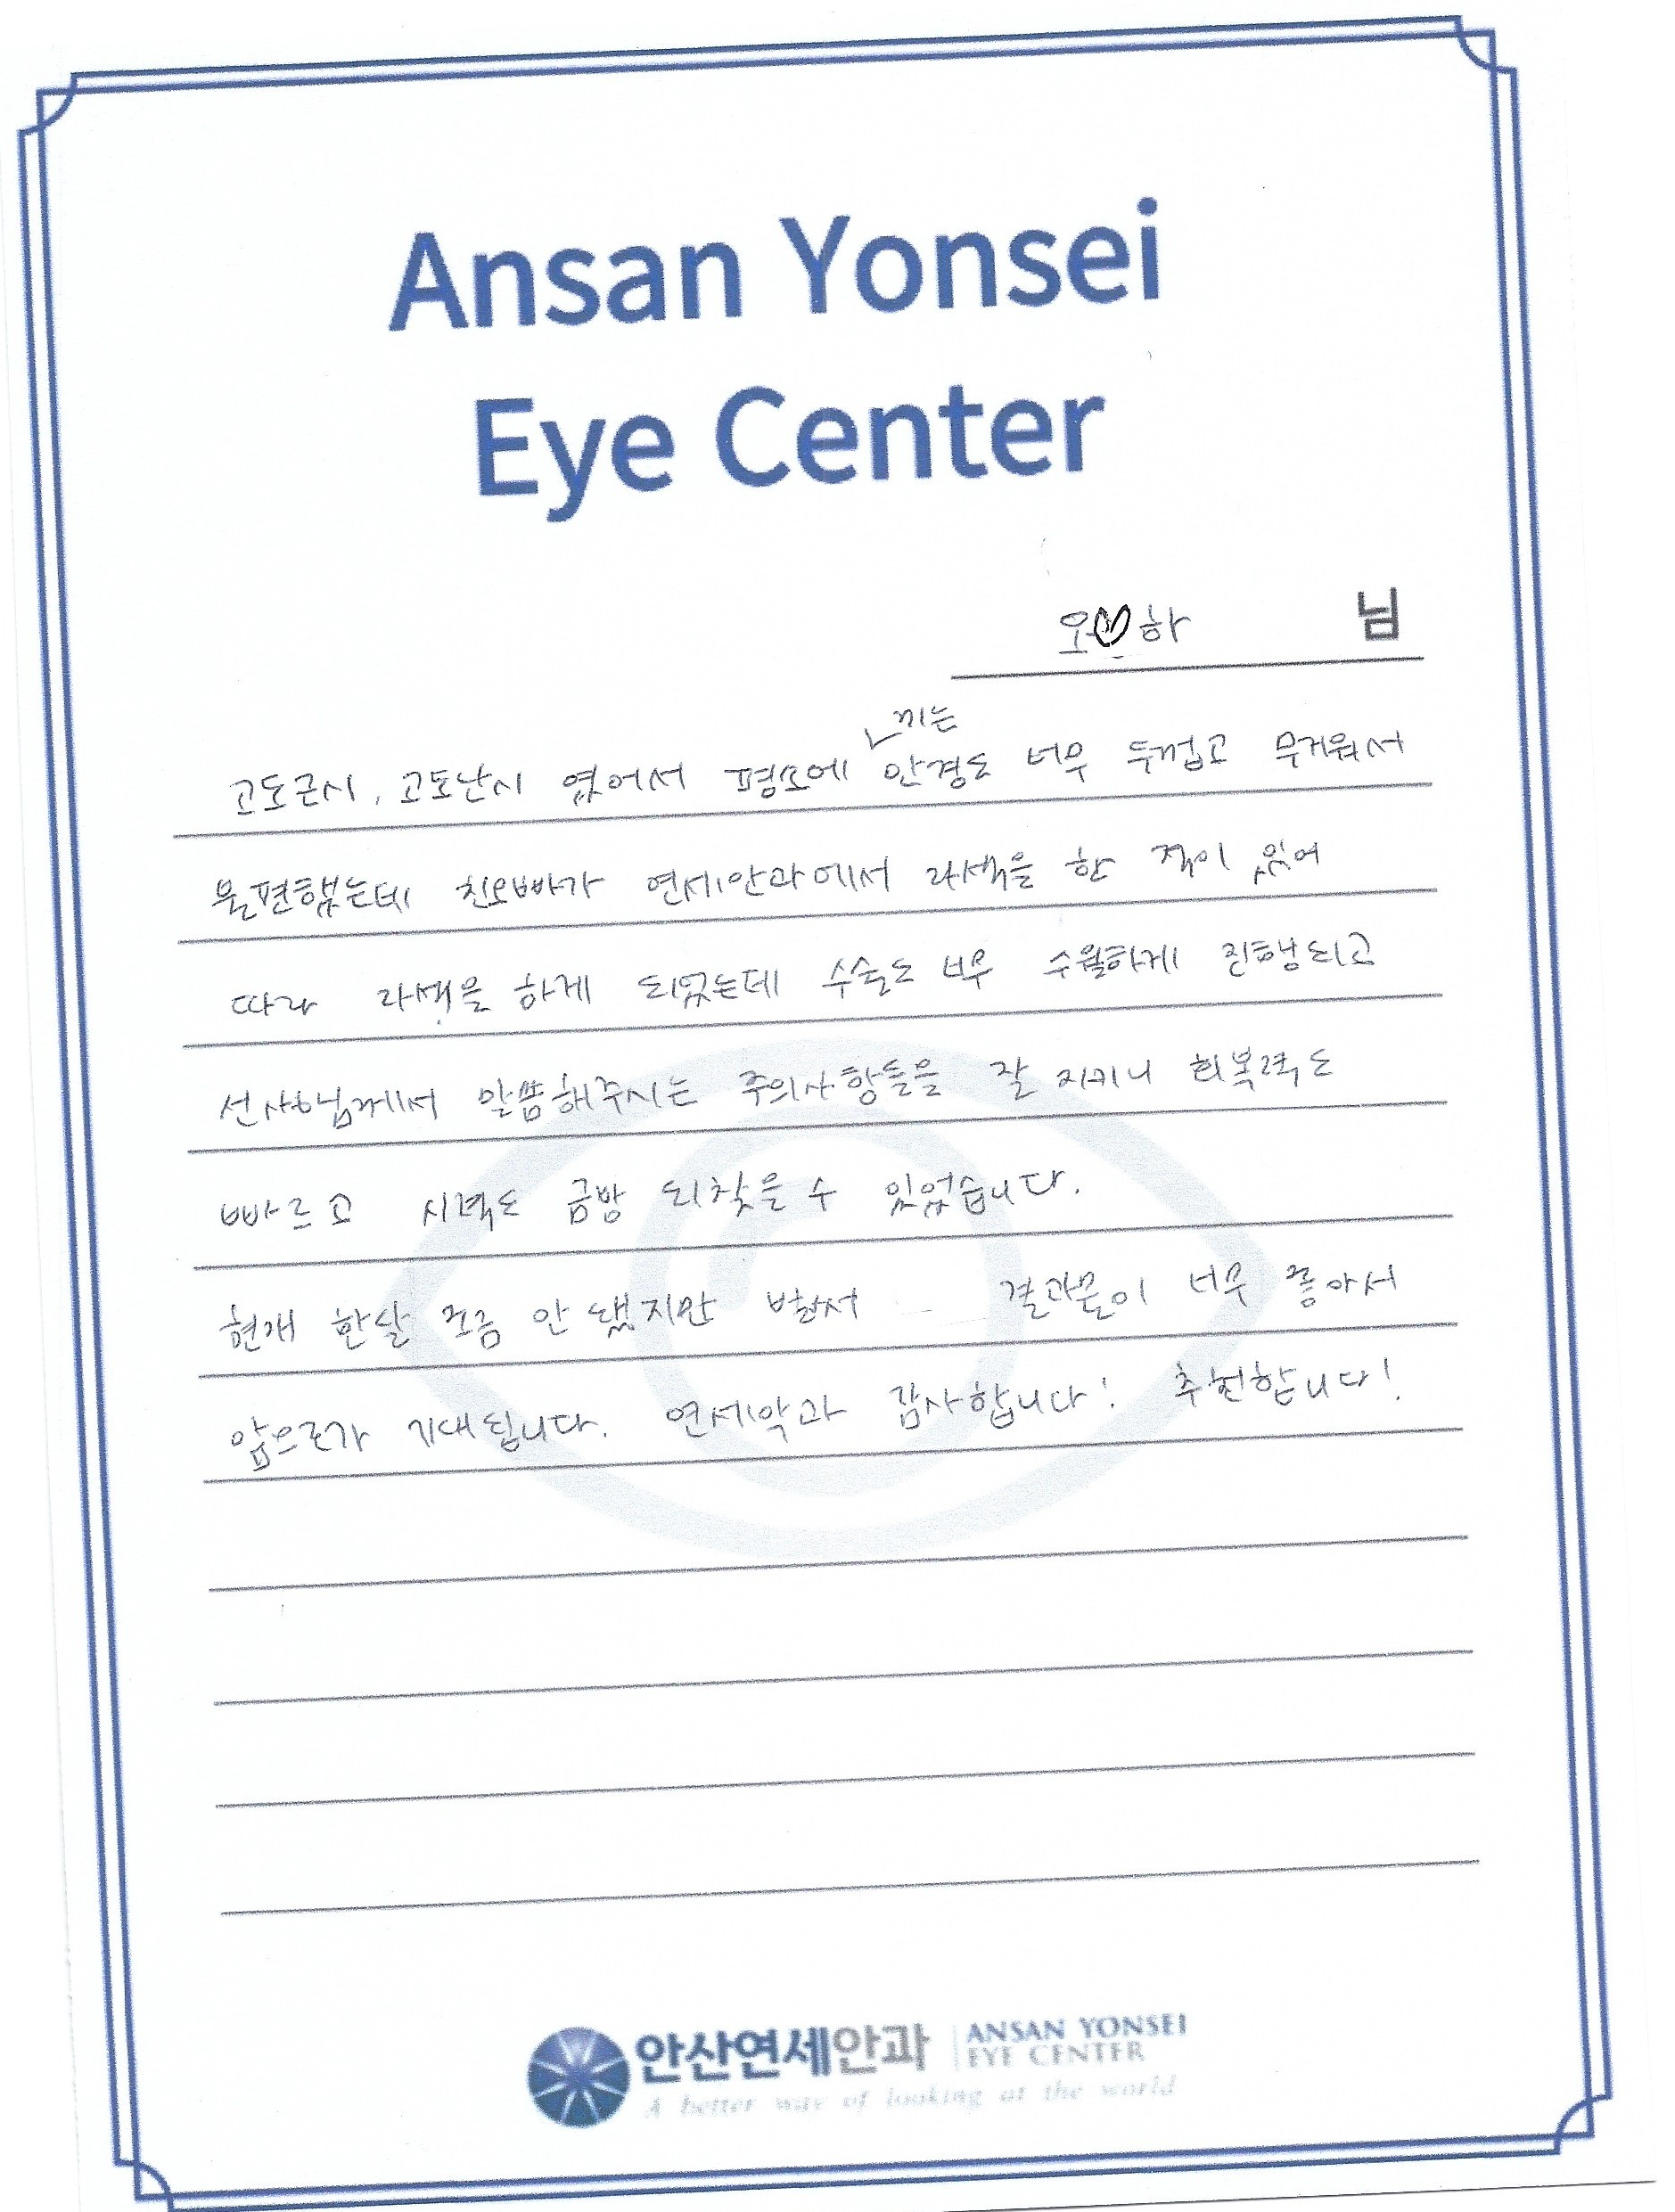 Ansan Yonsei
Eye Center
오♡하 님
고도근시, 고도난시 였어서 평소에 끼는 안경도 너무 두껍고 무거워서
불편했는데 친오빠가 연세안과에서 라섹을 한 적이 있어
따라 라섹을 하게 되었는데 수술도 너무 수월하게 진행되고
선생님께서 말씀해주시는 주의사항들을 잘 지키니 회복력도
빠르고 시력도 금방 되찾을 수 있었습니다.
현재 한달 조금 안 됐지만 벌써 결과물이 너무 좋아서
앞으로가 기대됩니다. 연세안과 감사합니다! 추천합니다!
안산연세안과 ANSAN YONSEI
EYE CENTER
A better way of looking at the world